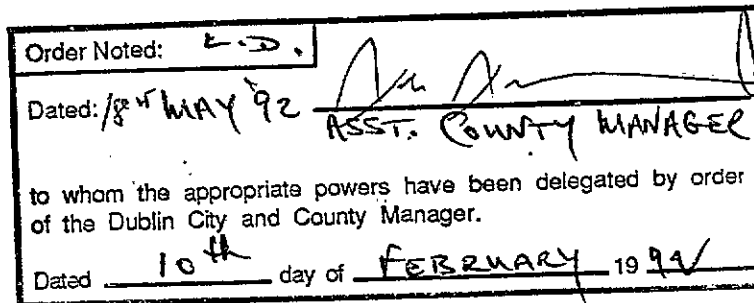 Order Noted: L.D.
Dated: MAY '92
ASST. COUNTY MANAGER
to whom the appropriate powers have been delegated by order
of the Dublin City and County Manager.
Dated 10th day of FEBRUARY 19